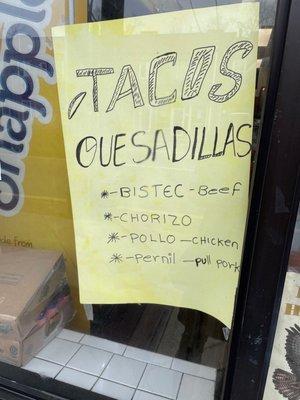 TACOS
QUESADILLAS
*-BISTEC-Beef
*-CHORIZO
*-POLLO-CHICKEN
*-Pernil-pull pork
Snapple
made from